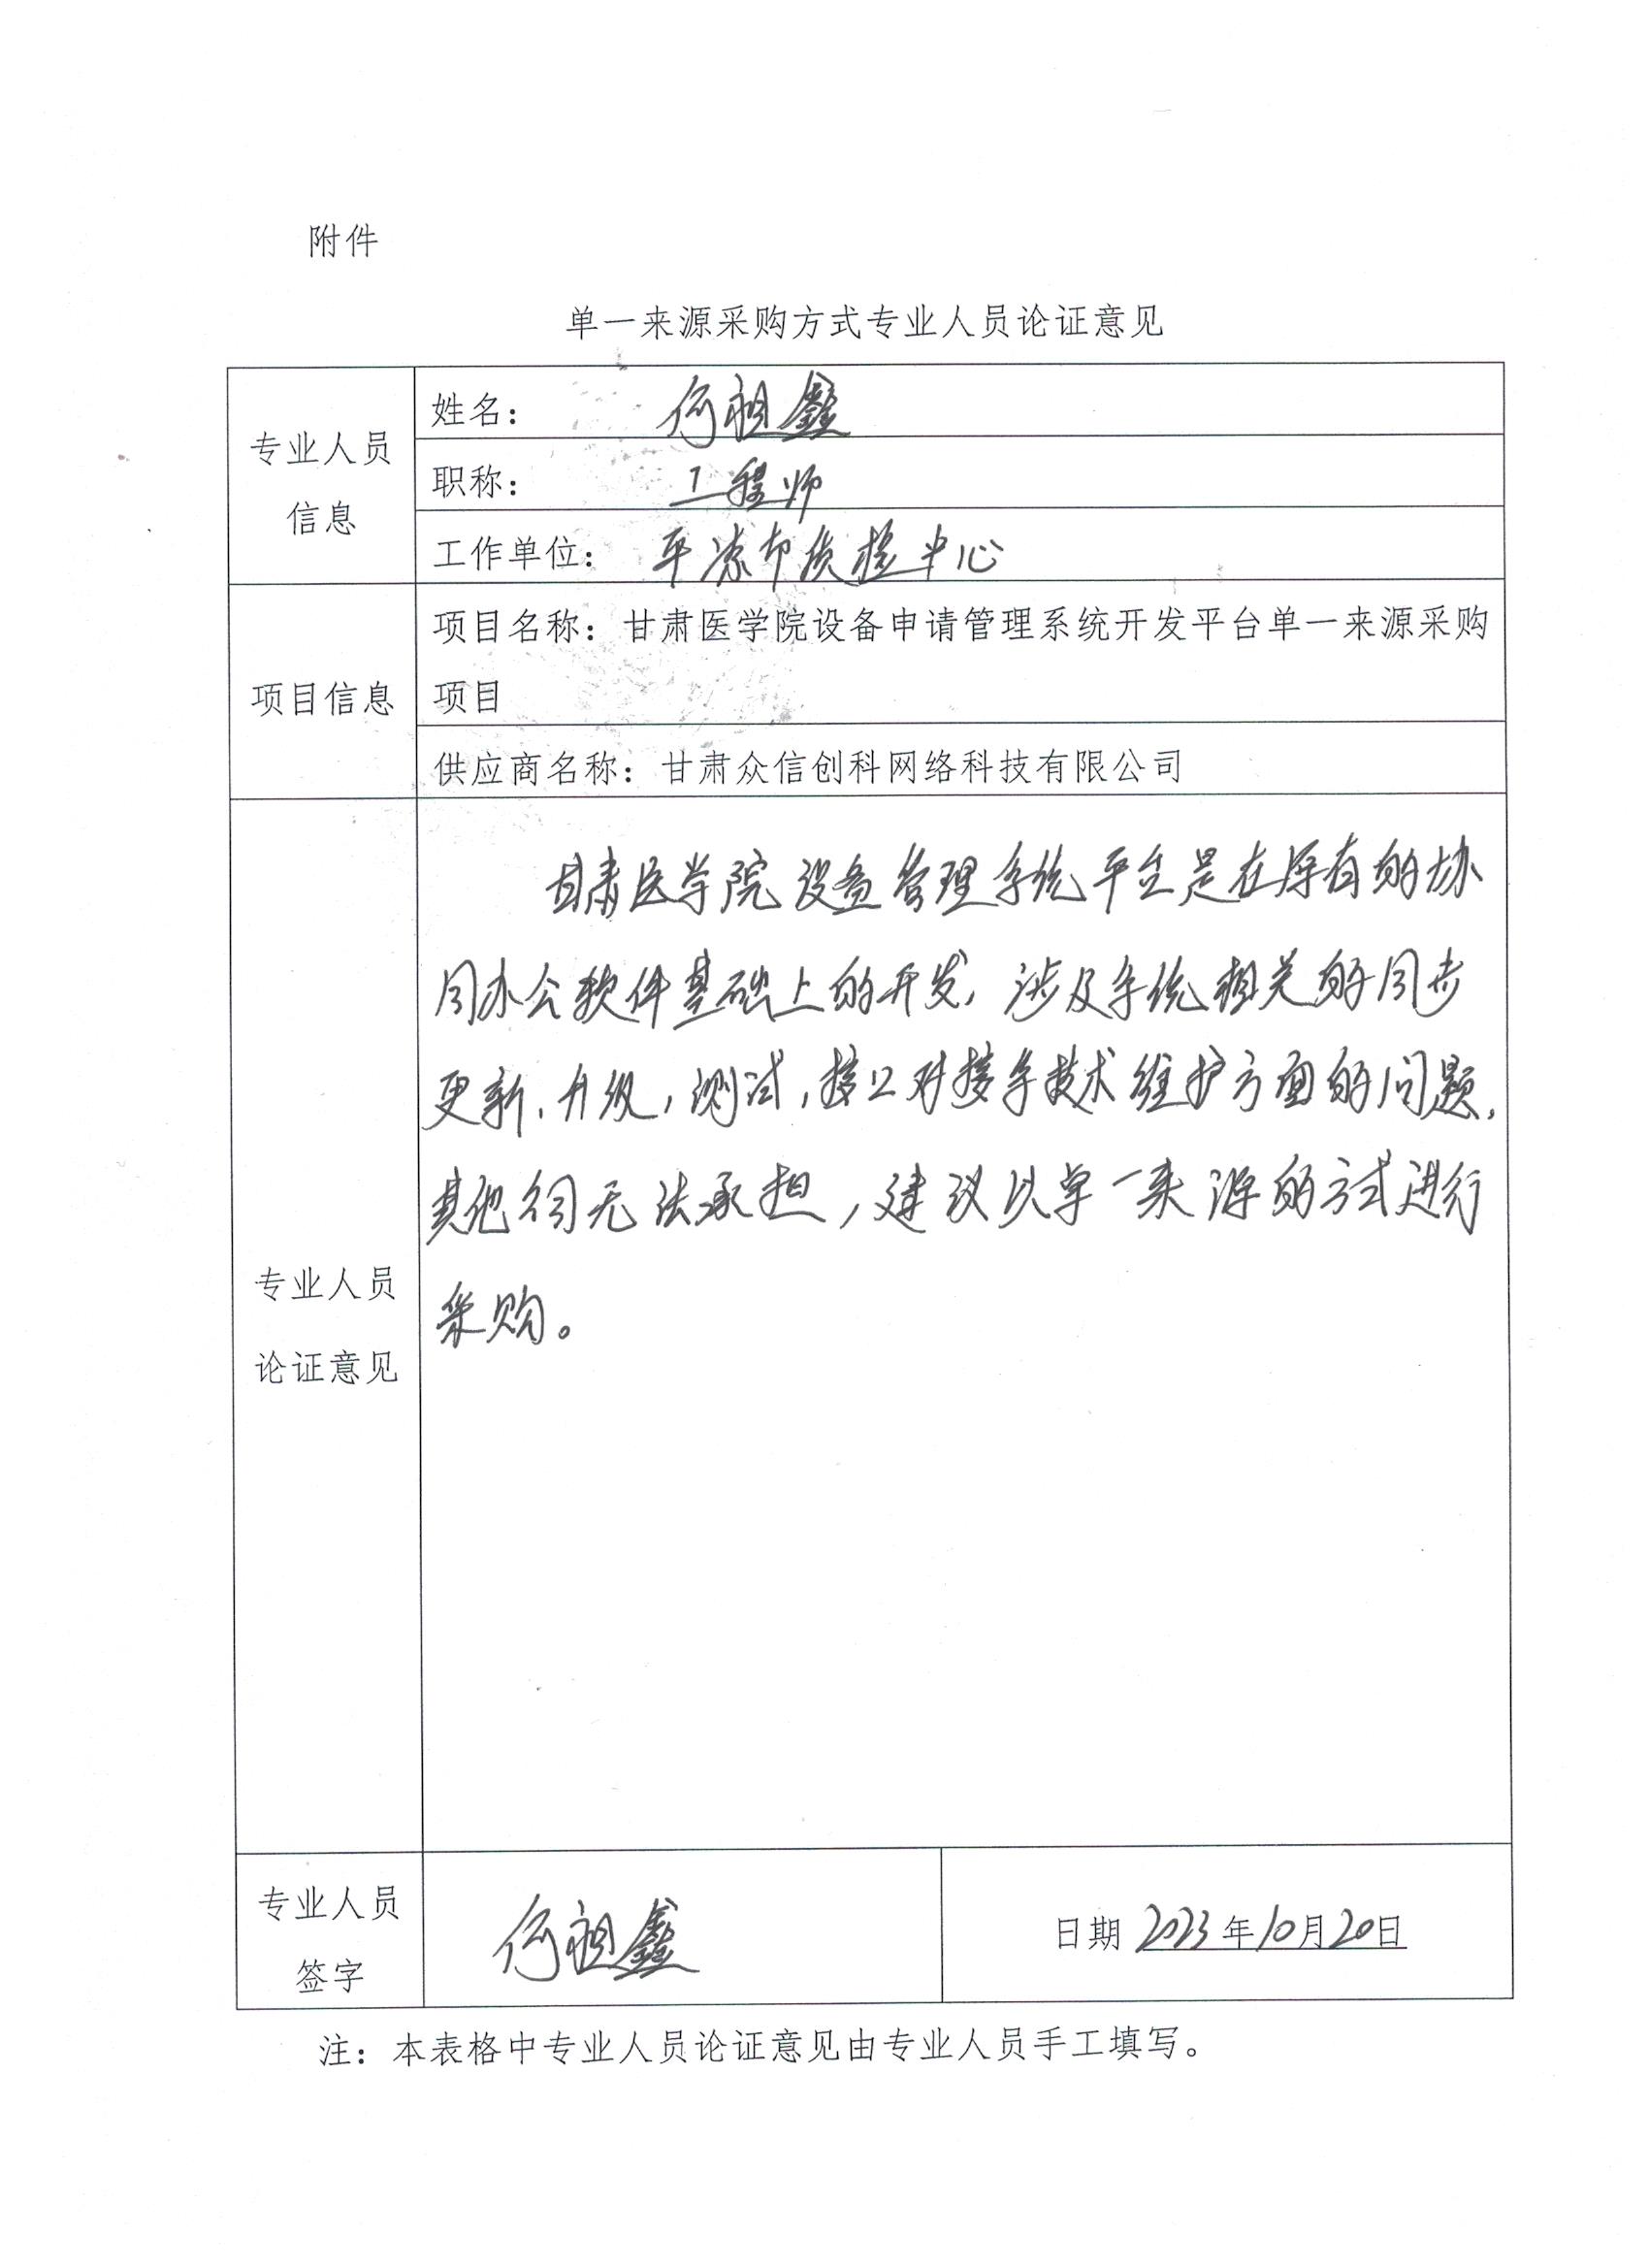 附件
单一来源采购方式专业人员论证意见
专业人员
信息
姓名： 何祖鑫
职称： 工程师
工作单位： 平凉市质检中心
项目信息
项目名称：甘肃医学院设备申请管理系统开发平台单一来源采购
项目
供应商名称：甘肃众信创科网络科技有限公司
专业人员
论证意见
甘肃医学院设备管理系统平台是在原有的协
同办公软件基础上的开发，涉及系统相关的同步
更新、升级，测试，接口对接等技术维护方面的问题，
其他公司无法承担，建议以单一来源的方式进行
采购。
专业人员
签字
何祖鑫
日期 2023年10月20日
注：本表格中专业人员论证意见由专业人员手工填写。